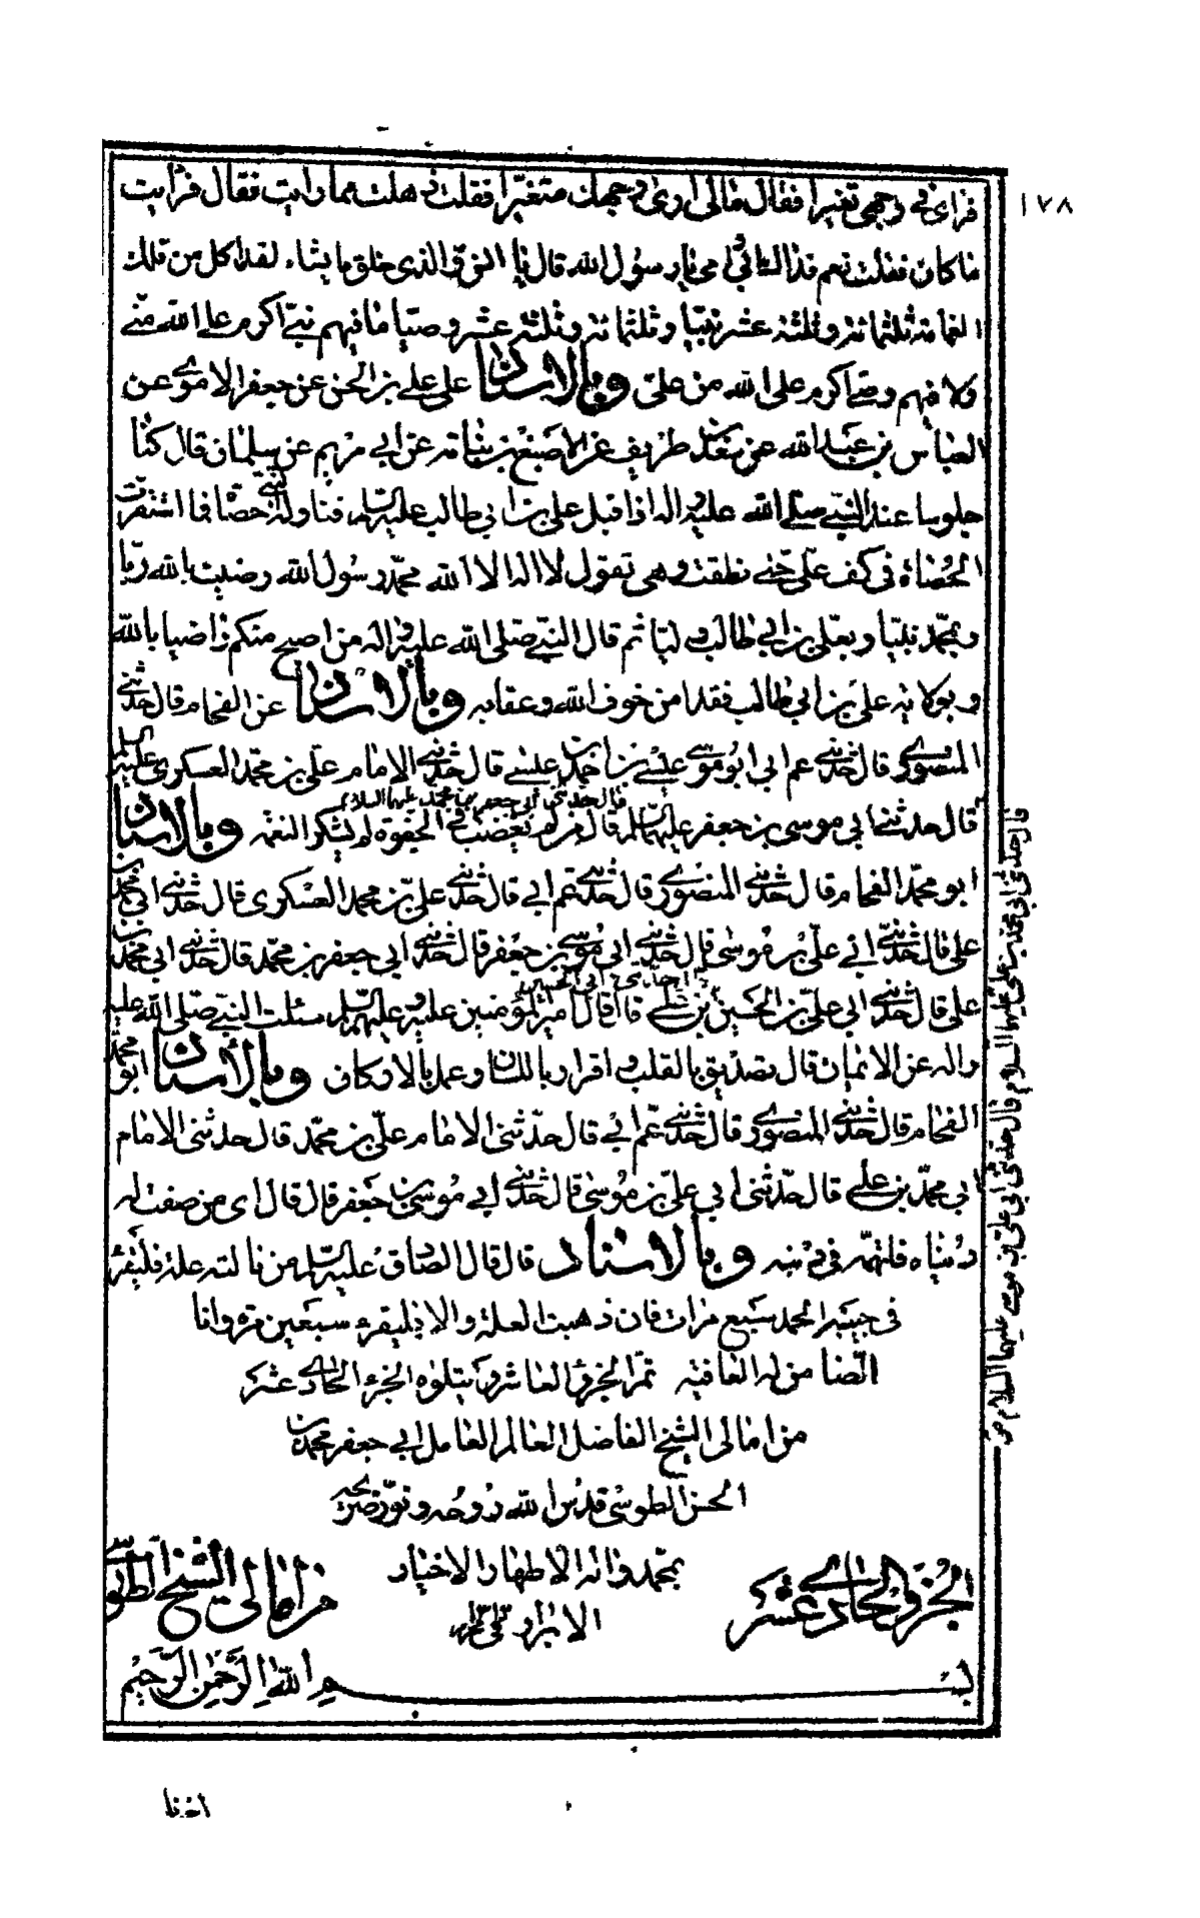 ١٧٨
فرأى في وجهي تغيرا فقال مالي ارى وجهك متغيرا فقلت ذهلت مما رايت فقال فرايت
ما كان فقلت نعم قال يا رسول الله قال يا والذي خلق ما يشاء لقد اكل من تلك
ثلثمائة وثلثة عشر نبيا وثلثمائة وثلثة عشر وصيا ما فيهم نبي اكرم على الله مني
ولا فيهم وصي اكرم على الله من علي وبالاسناد على علي بن الحسن عن جعفر الاموي عن
العباس بن عبد الله عن سعد بن طريف عن الاصبغ بن نباتة عن ابي مريم عن سلمان قال كنا
جلوسا عند النبي صلى الله عليه واله اذ اقبل علي بن ابي طالب عليه السلم فناوله النبي حصاة فما استقرت
الحصاة في كف علي حتى نطقت وهي تقول لا اله الا الله محمد رسول الله رضيت بالله ربا
وبمحمد نبيا وبعلي بن ابي طالب وليا ثم قال النبي صلى الله عليه واله من اصبح منكم راضيا بالله
وبولاية علي بن ابي طالب فقد امن خوف الله وعقابه وبالاسناد عن الفحام قال حدثني
المنصوري قال حدثني عم ابي ابو موسى عيسى بن احمد بن عيسى قال حدثني الامام علي بن محمد العسكري عليه السلم
قال حدثني ابي جعفر بن محمد عليهما السلام
قال حدثنا ابي موسى بن جعفر عليهما السلم قال من لم يغضب في الجفوة لم يشكر النعمة وبالاسناد
ابو محمد الفحام قال حدثني المنصوري قال حدثني عم ابي قال حدثني علي بن محمد العسكري قال حدثني ابي محمد بن
علي قال حدثني ابي علي بن موسى قال حدثني ابي موسى بن جعفر قال حدثني ابي جعفر بن محمد قال حدثني ابي محمد بن
علي قال حدثني ابي علي بن الحسين بن علي قال قال امير المؤمنين عليه وعليهم السلم سئلت النبي صلى الله عليه
واله عن الايمان قال تصديق بالقلب واقرار باللسان وعمل بالاركان وبالاسناد ابو محمد
الفحام قال حدثني المنصوري قال حدثني عم ابي قال حدثني الامام علي بن محمد قال حدثني الامام
ابي محمد بن علي قال حدثني ابي علي بن موسى قال حدثني ابي موسى بن جعفر قال قال اى من صفت له
دنياه فاتهمه في دينه وبالاسناد قال قال الصادق عليه السلم من نالته علة فليقرء
في جيبه الحمد سبع مرات فان ذهبت العلة والا فليقرء سبعين مرة وانا
الضامن له العافية تم الجزؤ العاشر ويتلوه الجزء الحادي عشر
من امالي الشيخ الفاضل العالم العامل ابي جعفر محمد بن
الحسن الطوسي قدس الله روحه ونور ضريحه
بمحمد واله الاطهار الاخيار
الابرار
الجزؤ الحادي عشر من امالي الشيخ الطوسي
بسم الله الرحمن الرحيم
اخبرنا
قال حدثني ابي محمد بن علي عليهما السلام قال حدثني ابي علي بن موسى عليهما السلام صح